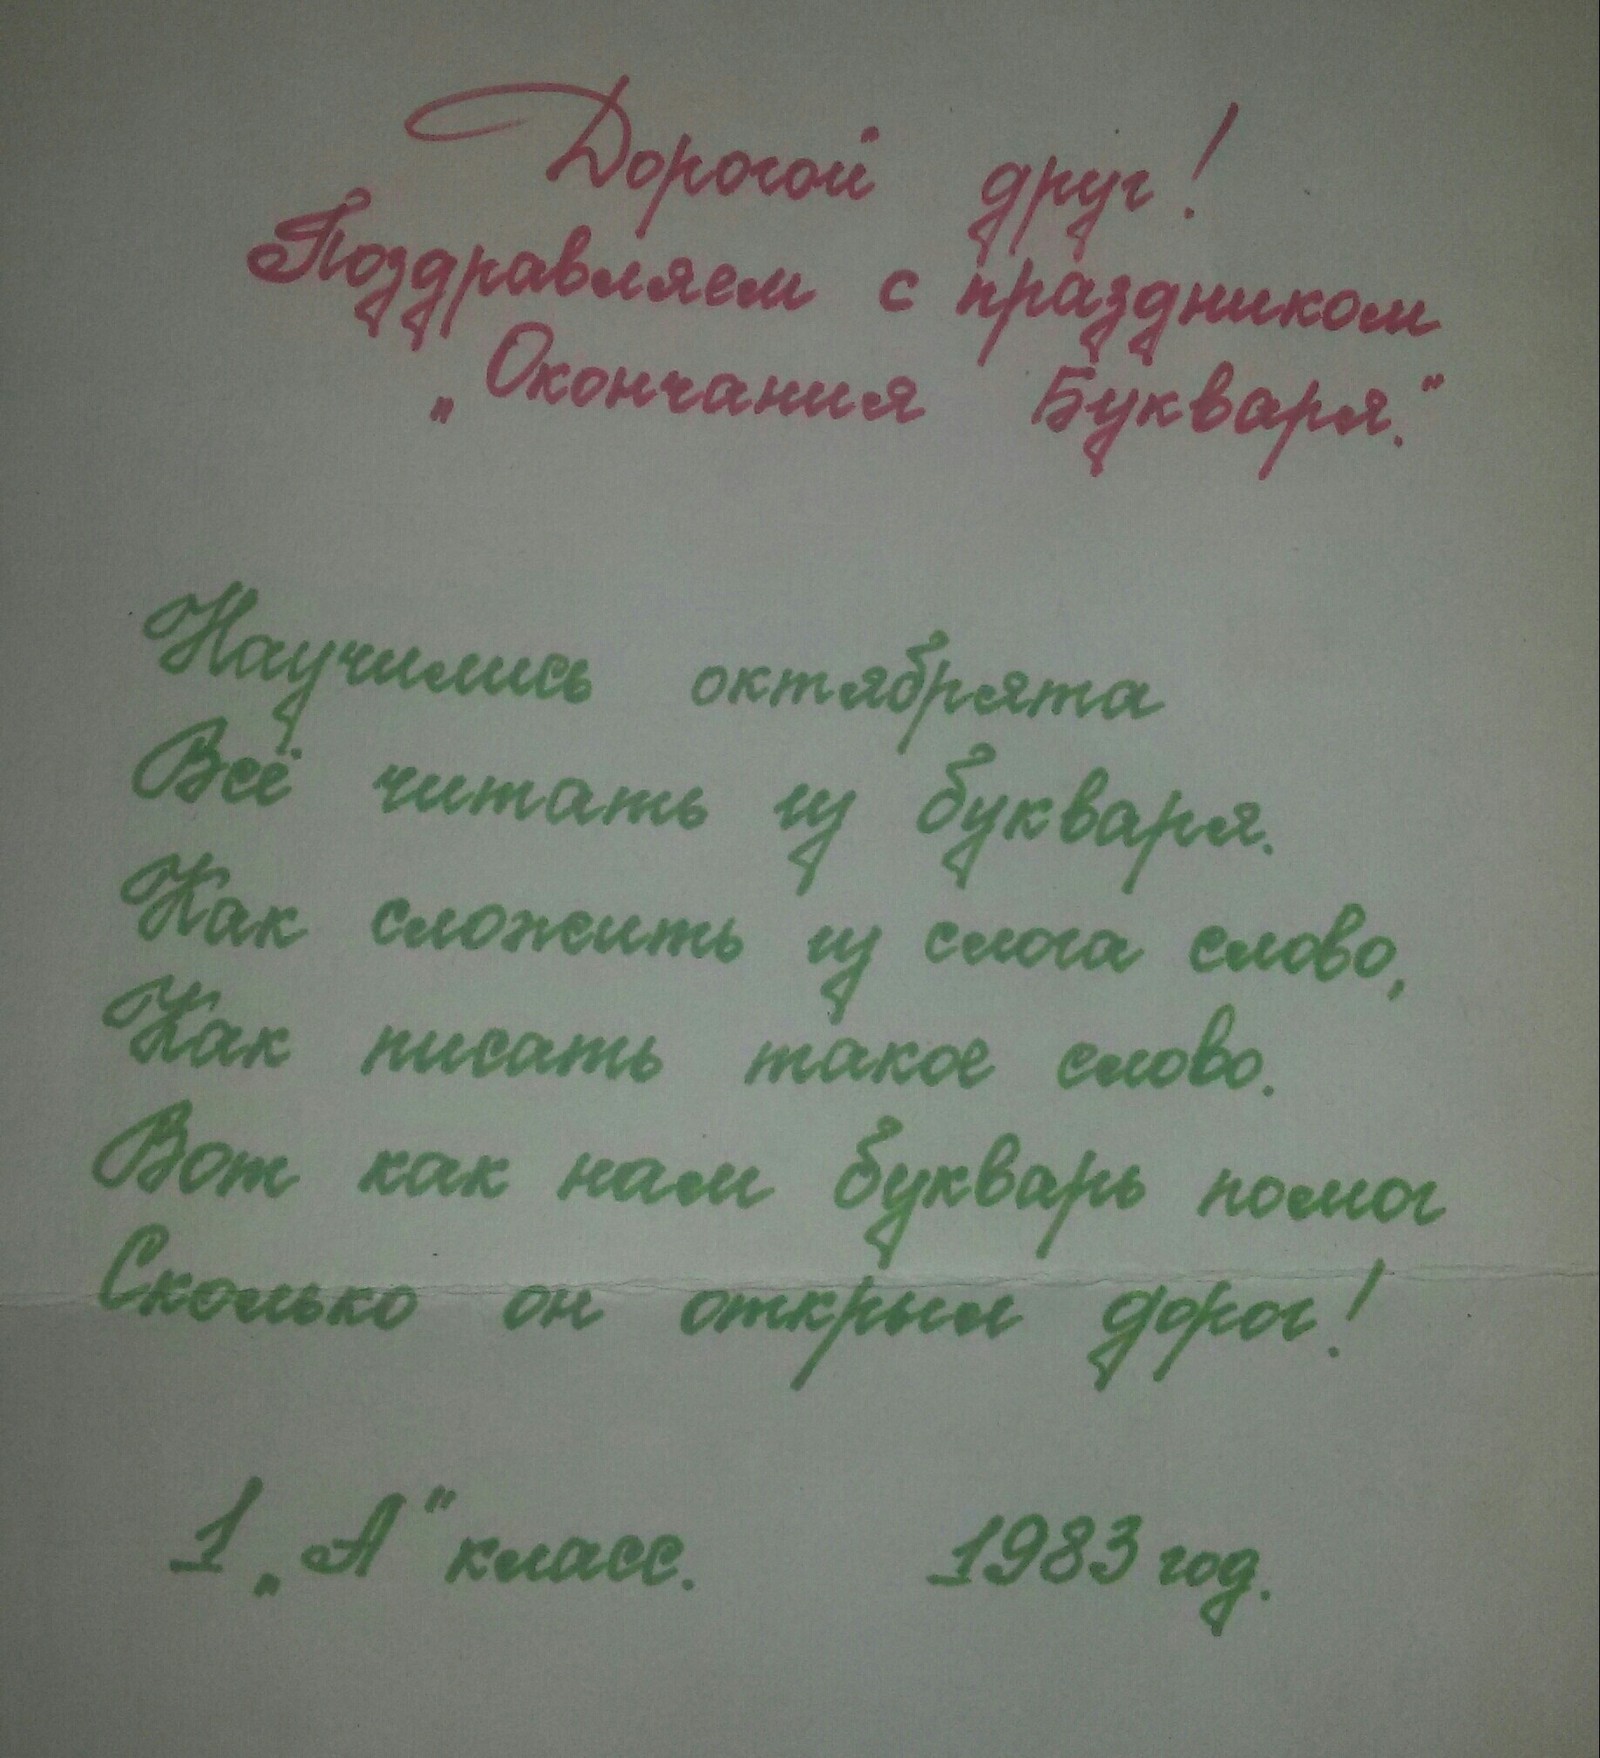 Дорогой друг!
Поздравляем с праздником
„Окончания Букваря."
Научились октябрята
Всё читать из букваря.
Как сложить из слога слово,
Как писать такое слово.
Вот как нам букварь помог
Сколько он открыл дорог!
1 „А" класс. 1983 год.